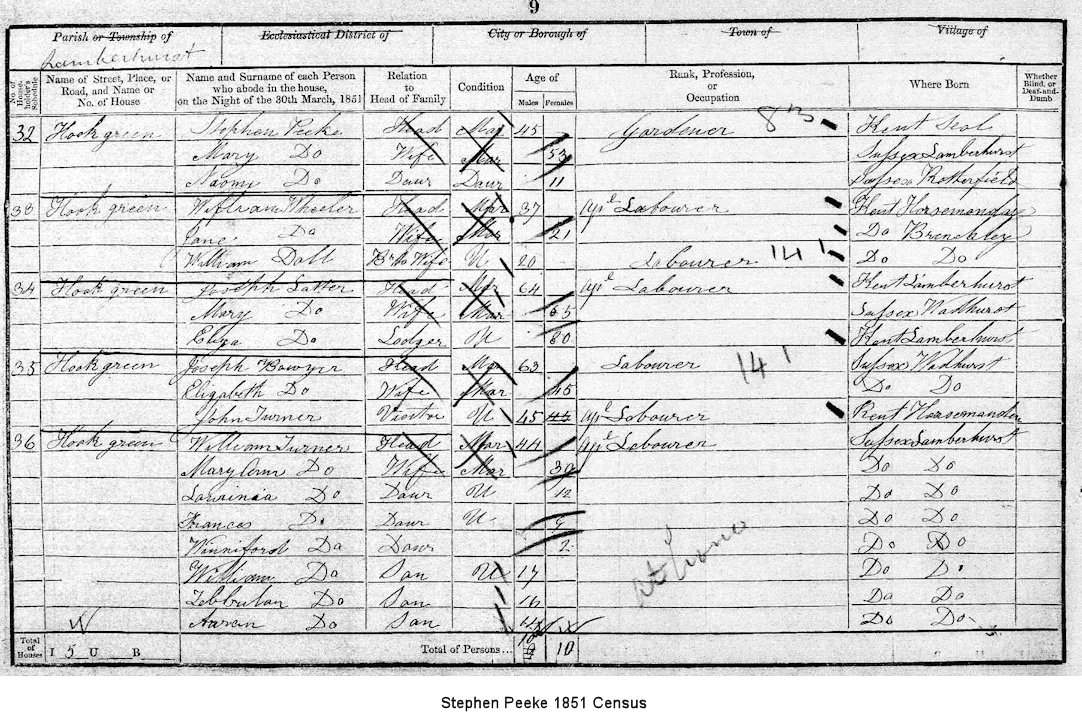 9
Parish or Township of Ecclesiastical District of City or Borough of Town of Village of
Lamberhurst
No. of House-holder's Schedule Name of Street, Place, or Road, and Name or No. of House Name and Surname of each Person who abode in the house, on the Night of the 30th March, 1851 Relation to Head of Family Condition Age of Males Females Rank, Profession, or Occupation Where Born Whether Blind, or Deaf-and-Dumb
32 Hook green Stephen Peeke Head Mar 45 Gardener Kent Seal
Mary Do Wife Mar 53 Sussex Lamberhurst
Naomi Do Daur Daur 11 Sussex Rotherfield
33 Hook green William Wheeler Head Mar 37 Agl Labourer Kent Horsemonden
Jane Do Wife Mar 21 Do Brenchley
William Dall Br to Wife U 20 Labourer 14 1 Do Do
34 Hook green Joseph Latter Head Mar 64 Agl Labourer Kent Lamberhurst
Mary Do Wife Mar 65 Sussex Wadhurst
Eliza Do Lodger U 80 Kent Lamberhurst
35 Hook green Joseph Bowyer Head Mar 63 Labourer 14 1 Sussex Wadhurst
Elizabeth Do Wife Mar 45 Do Do
John Turner Visitor U 45 Agl Labourer Kent Horsemonden
36 Hook green William Turner Head Mar 44 Agl Labourer Sussex Lamberhurst
Mary Ann Do Wife Mar 39 Do Do
Lavinia Do Daur U 12 Do Do
Frances Do Daur U 9 Do Do
Winniford Do Daur 2 Do Do
William Do Son U 17 at home Do Do
Do Son 16 Do Do
Aaron Do Son Do Do
Total of Houses I 5 U B Total of Persons... 10 10
Stephen Peeke 1851 Census